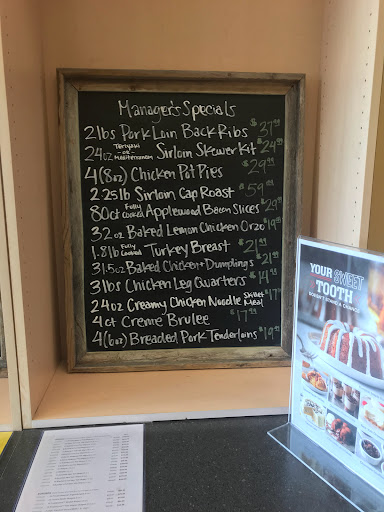 Manager's Specials
2lbs Pork Loin Back Ribs $37.99
24oz Teriyaki -or- Mediterranean Sirloin Skewer Kit $24.99
4(8oz) Chicken Pot Pies $29.99
2.25lb Sirloin Cap Roast $59.99
80ct Fully Cooked Applewood Bacon Slices $29.99
32oz Baked Lemon Chicken Orzo $19.99
1.8lb Fully Cooked Turkey Breast $21.99
31.5oz Baked Chicken + Dumplings $21.99
3lbs Chicken Leg Quarters $14.99
24oz Creamy Chicken Noodle Skillet Meal $17.99
4ct Creme Brulee $17.99
4(6oz) Breaded Pork Tenderloins $19.99
YOUR SWEET
TOOTH
DOESN'T STAND A CHANCE